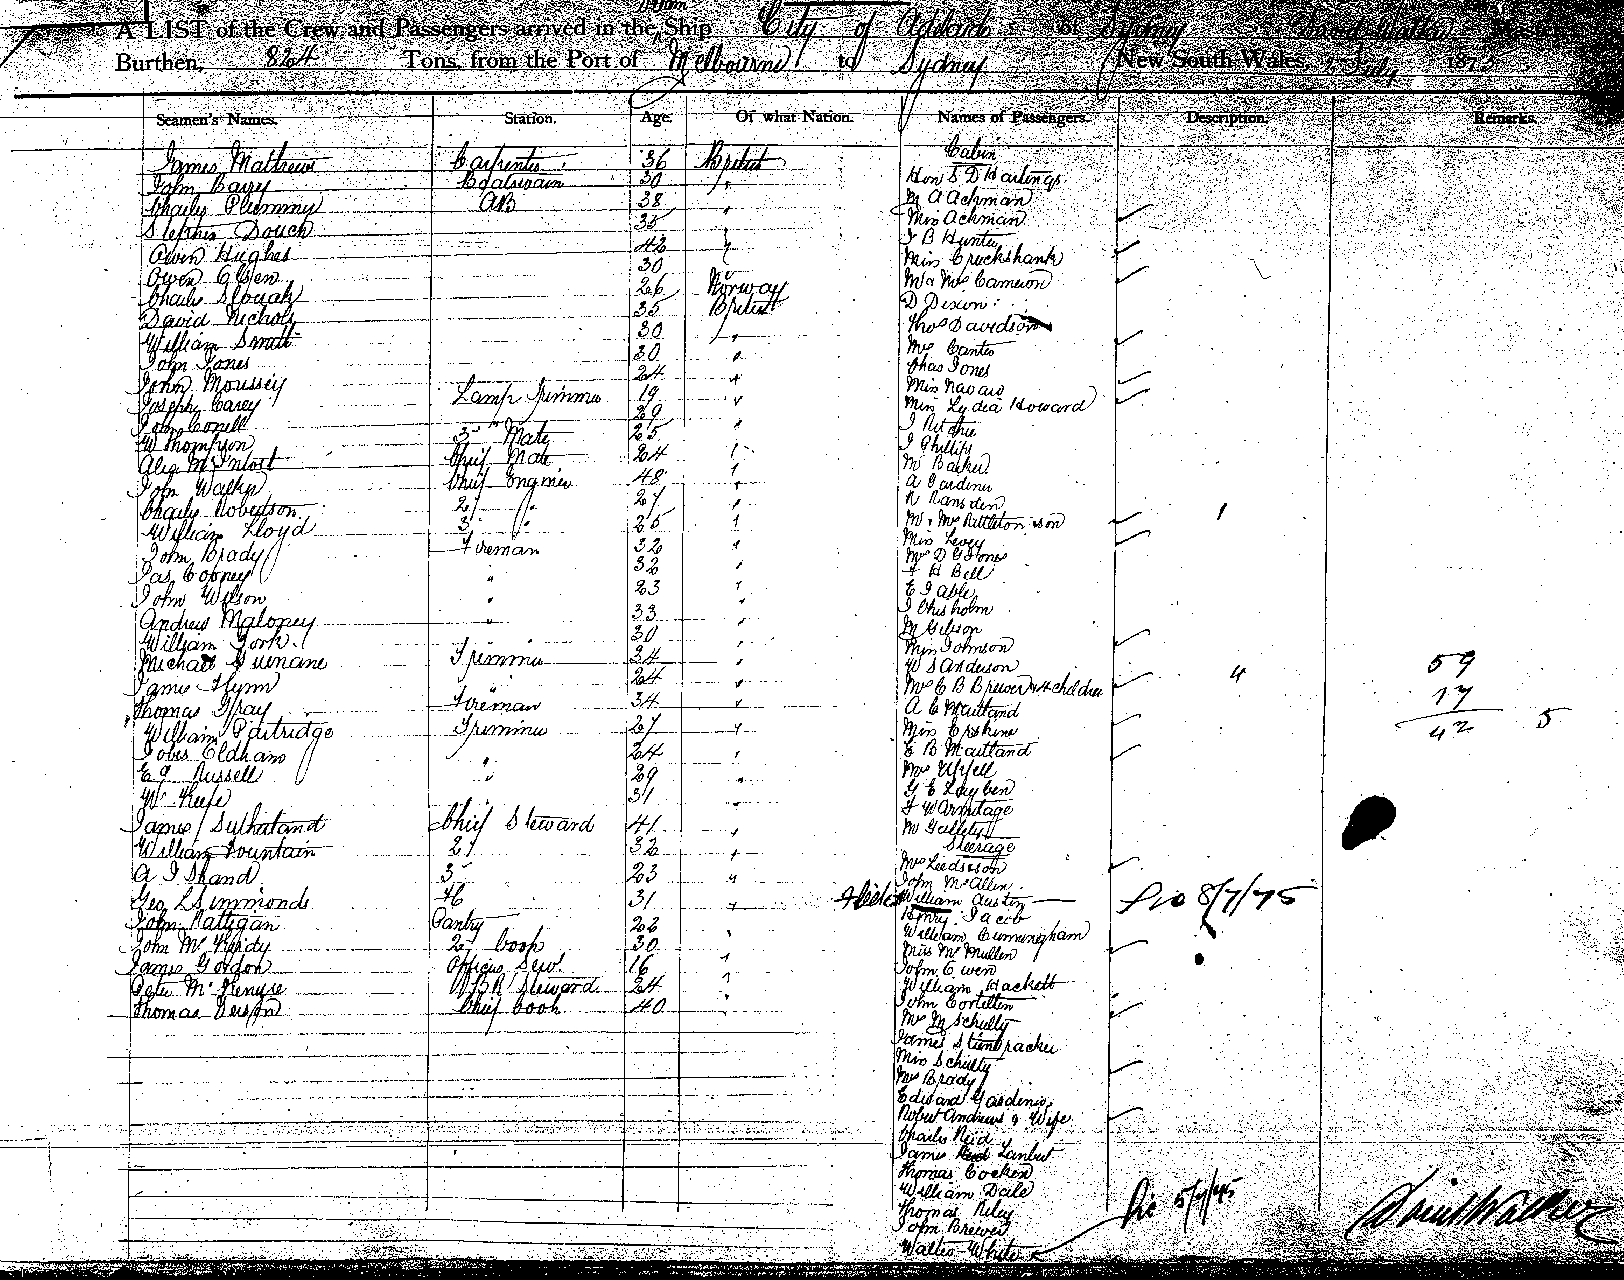 A LIST of the Crew and Passengers arrived in the Ship City of Adelaide of Sydney David Walker Master
Burthen, 824 Tons, from the Port of Melbourne to Sydney New South Wales, July 1875
Seamen's Names. Station. Age. Of what Nation. Names of Passengers. Description. Remarks.
James Mathews Carpenter 36 British
John Barry Boatswain 30 "
Charles Plummy AB 38 "
Stephen Douch 35
Owen Hughes 42 "
Owen Olsen 30
Charles Slouah 26 Norway
David Nichols 35 British
William Smith 30 "
John Jones 30 "
John Moussey 24 "
Joseph Carey Lamp Trimmer 19 "
John Conell 29
W Thompson 3 Mate 25 "
Alex McIntosh Chief Mate 24 "
John Walker Chief Engineer 48 "
Charles Robertson 2 " 27 "
William Lloyd 3 " 25 "
John Brady Fireman 32 "
Jas Cooney " 32
John Wilson " 23 "
Andrew Maloney " 33 "
William York 30 "
Michael Guinane Trimmer 34 "
James Flynn 24 "
Thomas Gray Fireman 34 "
William Partridge Trimmer 27 "
Oldham " 24 "
Russell " 29 "
W Keefe 31 "
James Sutherland Chief Steward 41 "
William Fountain 2 32 "
A J Shand 3 23 "
Geo L Simmonds 4th 31 "
John Rattigan Pantry 22
John McHardy 2 Cook 30 "
James Gordon Officers Sew. 16 "
Peter McKenzie Steward 24 "
Thomas Chief Cook 40 "
Cabin
Hon S D Hastings
M A Achman
Miss Achman
J B Hunter
Miss Cruckshank
Mr & Mrs Cameron
D Dixon
Thos Davidson
Mrs Canter
Chas Jones
Miss Navaro
Miss Lydia Howard
J Ritchie
J Phillips
Mr Barker
A Gardiner
R Ramsden
Mr & Mrs Rattleton & son 1
Miss Levey
Mr D G Jones
F H Bell
E J Able
J Chisholm
M Gibson
Miss Johnson
W S Anderson
Mrs E B Brewer & 4 children 4
A C Maitland
Miss Erskine
E B Maitland
Mrs Upjell
G E Layben
F W Armitage
Mr Gallety
Steerage
Mrs Leedsson
John McAllen
William Austin
8/7/75
Henry Jacob
William Cunningham
Miss McMullen
John Ewen
William Hackett
John Cortelten
Mrs M Schulty
James Steinbracker
Miss Schulty
Mrs Brady
Edward Gardiner
Robert Andrews & Wife
Charles Reid
James Lambert
Thomas Cocken
William Dale
Thomas Riley
John Brewer
Walter White
5/7/75
59
17
42 5
David Walker